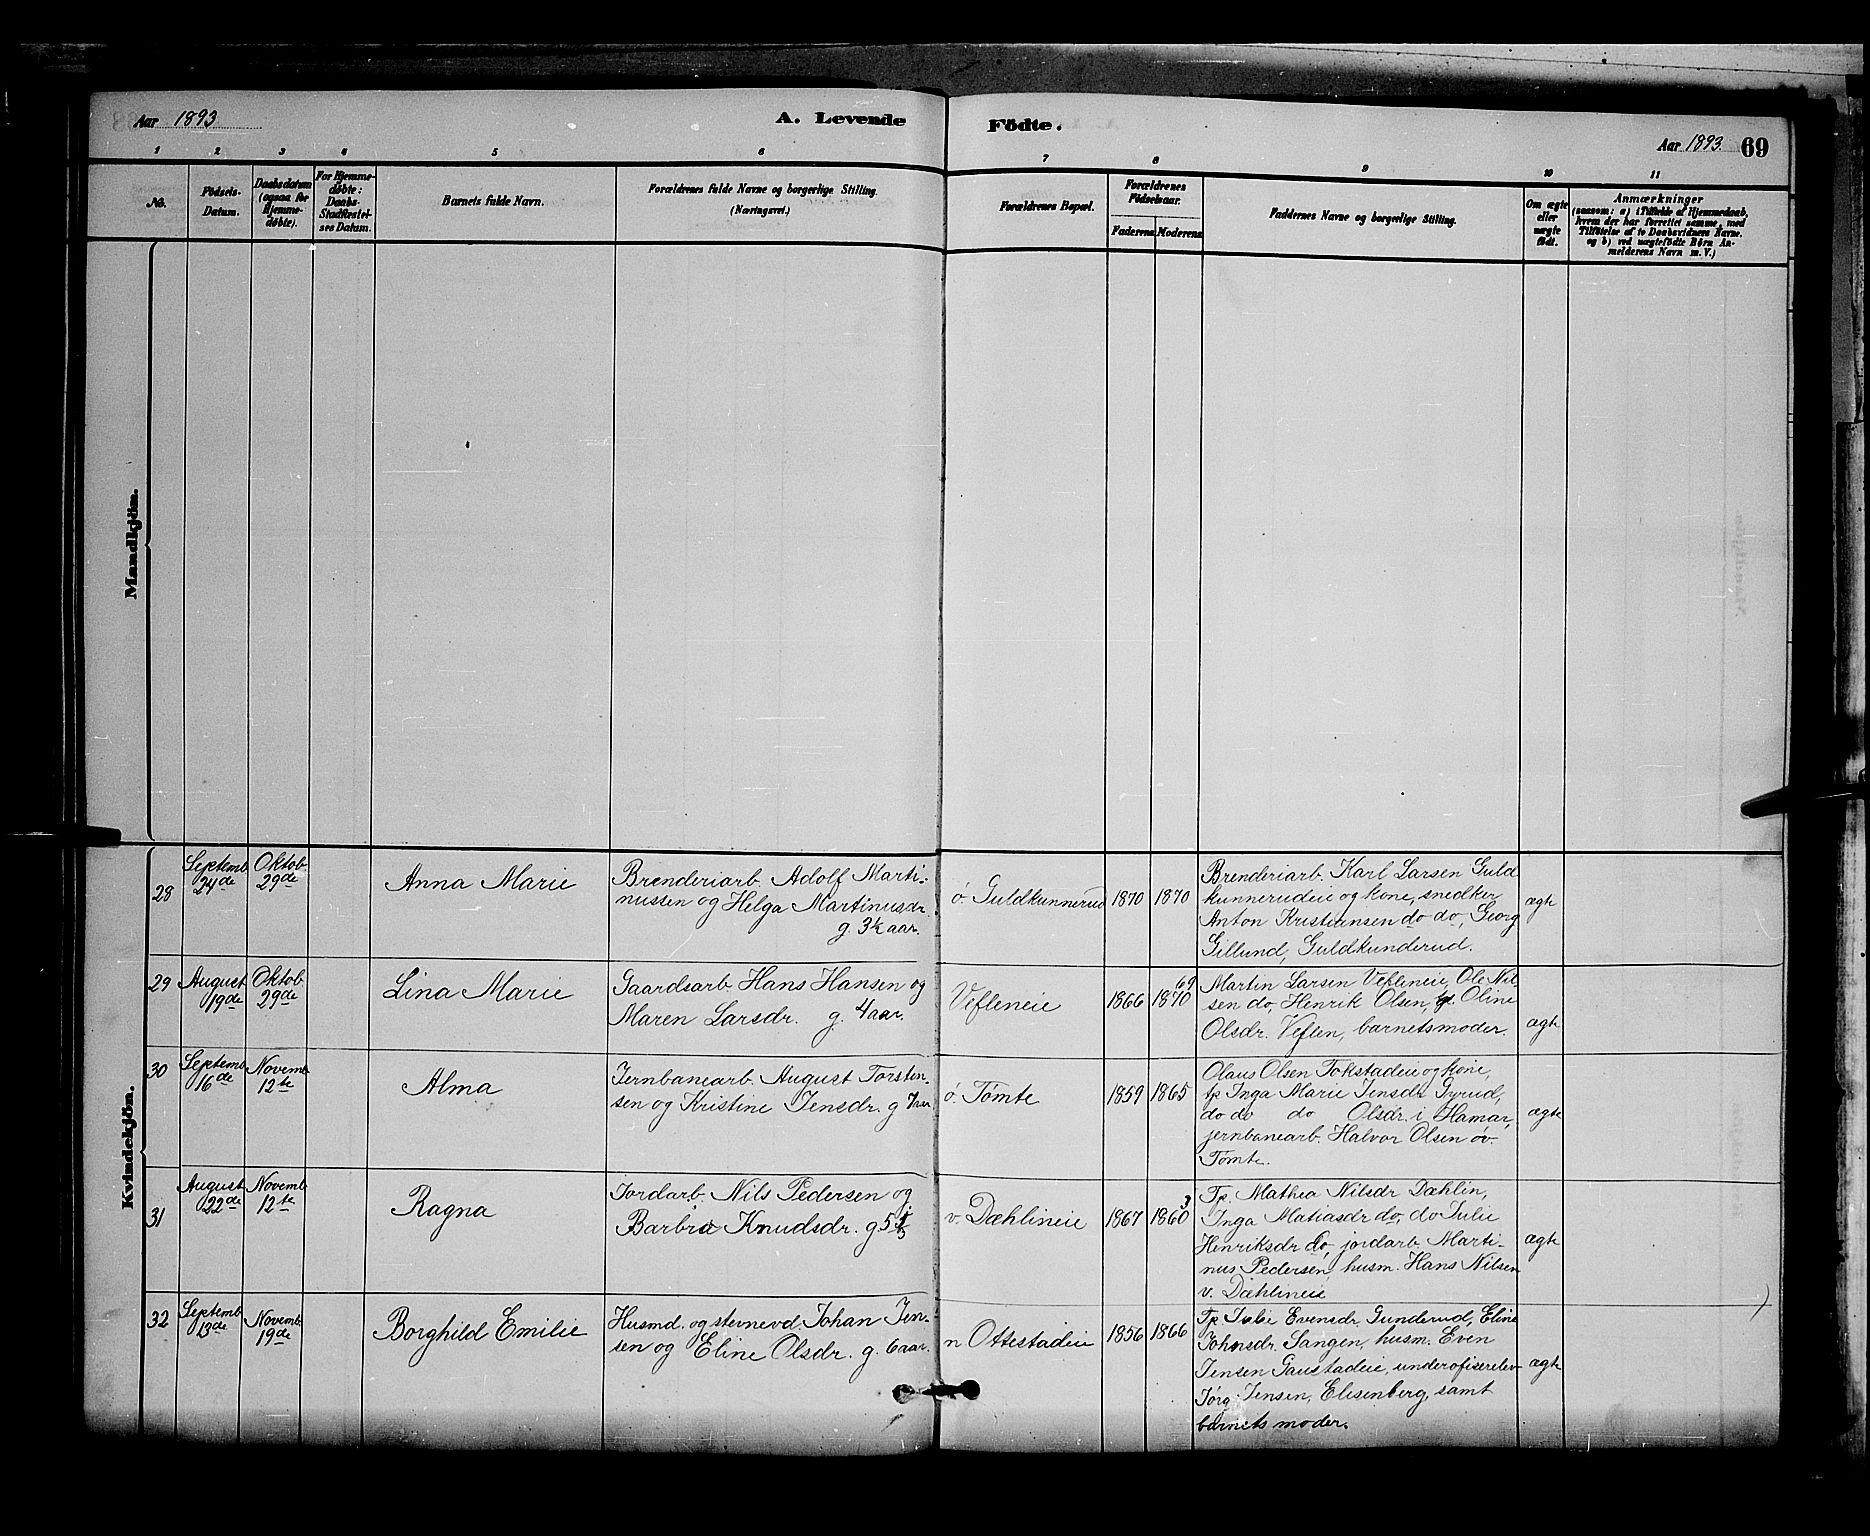 Aar 1893
A. Levende
Födte.
Aar 1893.
69
1 2 3 4 5 6 7 8 9 10 11
No.
Födsels-
Datum.
Daabsdatum
(ogsaa for
Hjemme-
døbte).
For Hjemme-
døbte:
Daabs-
Stadfæstel-
ses Datum.
Barnets fulde Navn.
Forældrenes fulde Navne og borgerlige Stilling.
(Næringsvei.)
Forældrenes Bopæl.
Forældrenes
Födselsaar.
Faderens Moderens
Faddernes Navne og borgerlige Stilling.
Om ægte
eller
uægte
födt.
Anmærkninger
(saasom: a) i Tilfælde af Hjemmedaab,
hvem der har forrettet samme, med
Tilföielse af to Daabsvidners Navne.
og b) ved uægtefödte Börn An-
melderens Navn m. V.)
Mandkjön.
Kvindekjön.
28
Septemb.
24de
Oktob.
29de
Anna Marie
Brenderiarb. Adolf Marti-
nussen og Helga Martinusdr.
g. 3½ aar.
ö. Guldkunnerud
1870
1870
Brenderiarb. Karl Larsen Guld
kunnerudeie og kone, snedker
Anton Kristiansen do do, Georg
Gillund, Guldkunderud.
ægte
29
August
19de
Oktob.
29de
Lina Marie
Gaardsarb. Hans Hansen og
Maren Larsdr. g. 4 aar.
Vefleneie
1866
69
1870
Martin Larsen Vefleneie, Ole Nil-
sen do, Henrik Olsen, tp. Oline
Olsdr. Veflen, barnets moder.
ægte
30
Septemb.
16de
Novemb.
12te
Alma
Jernbanearb. August Torsten-
sen og Kristine Jensdr. g 7 aar
ö. Tømte
1859
1865
Olaus Olsen Fokstadeie og kone,
tp Inga Marie Jensdr Gyrud,
do do do Olsdr. i Hamar,
jernbanearb. Halvor Olsen öv.
Tømte.
ægte
31
August
22de
Novemb.
12te
Ragna
Jordarb. Nils Pedersen og
Barbra Knudsdr. g 5
v. Dæhlineie
1867
3
1860
Tp. Mathea Nilsdr Dæhlin,
Inga Matiasdr do, do Julie
Henriksdr do, jordarb. Marti-
nus Pedersen, husm. Hans Nilsen
v. Dæhlineie
ægte
32
Septemb.
13de
Novemb.
19de
Borghild Emilie
Husmd. og stevnevd. Johan Jen-
sen og Eline Olsdr. g. 6 aar.
n Ottestadeie
1856
1866
Tp. Julie Evensdr Gunderud, Eline
Johnsdr. Sangen, husm. Even
Jensen Gaustadeie, underofiserelev
Jørg. Jensen, Elisenberg, samt
barnets moder.
ægte